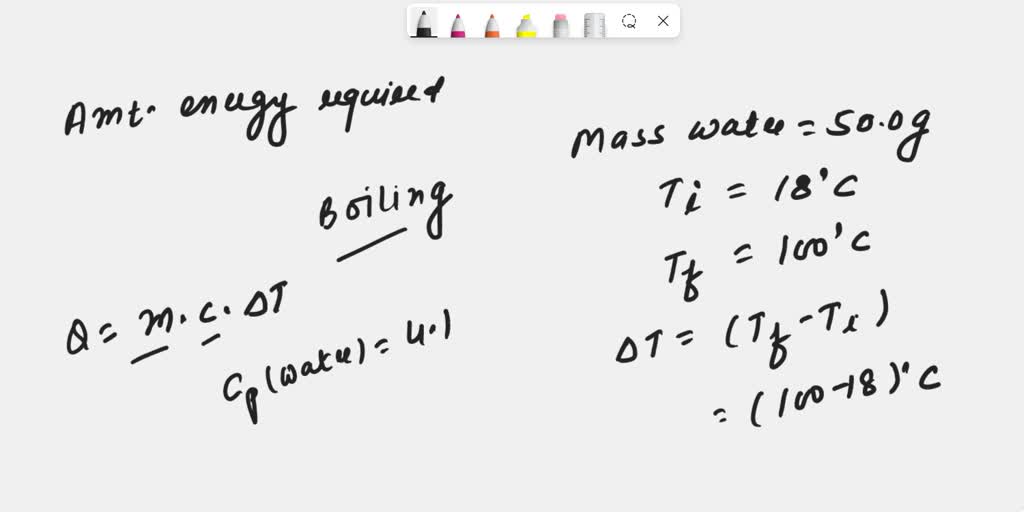 Amt. energy required
Boiling
Q = m.c.ΔT
Cp(water) = 4.1
Mass water = 50.0g
Ti = 18°C
Tf = 100°C
ΔT = (Tf - Ti)
= (100-18)°C